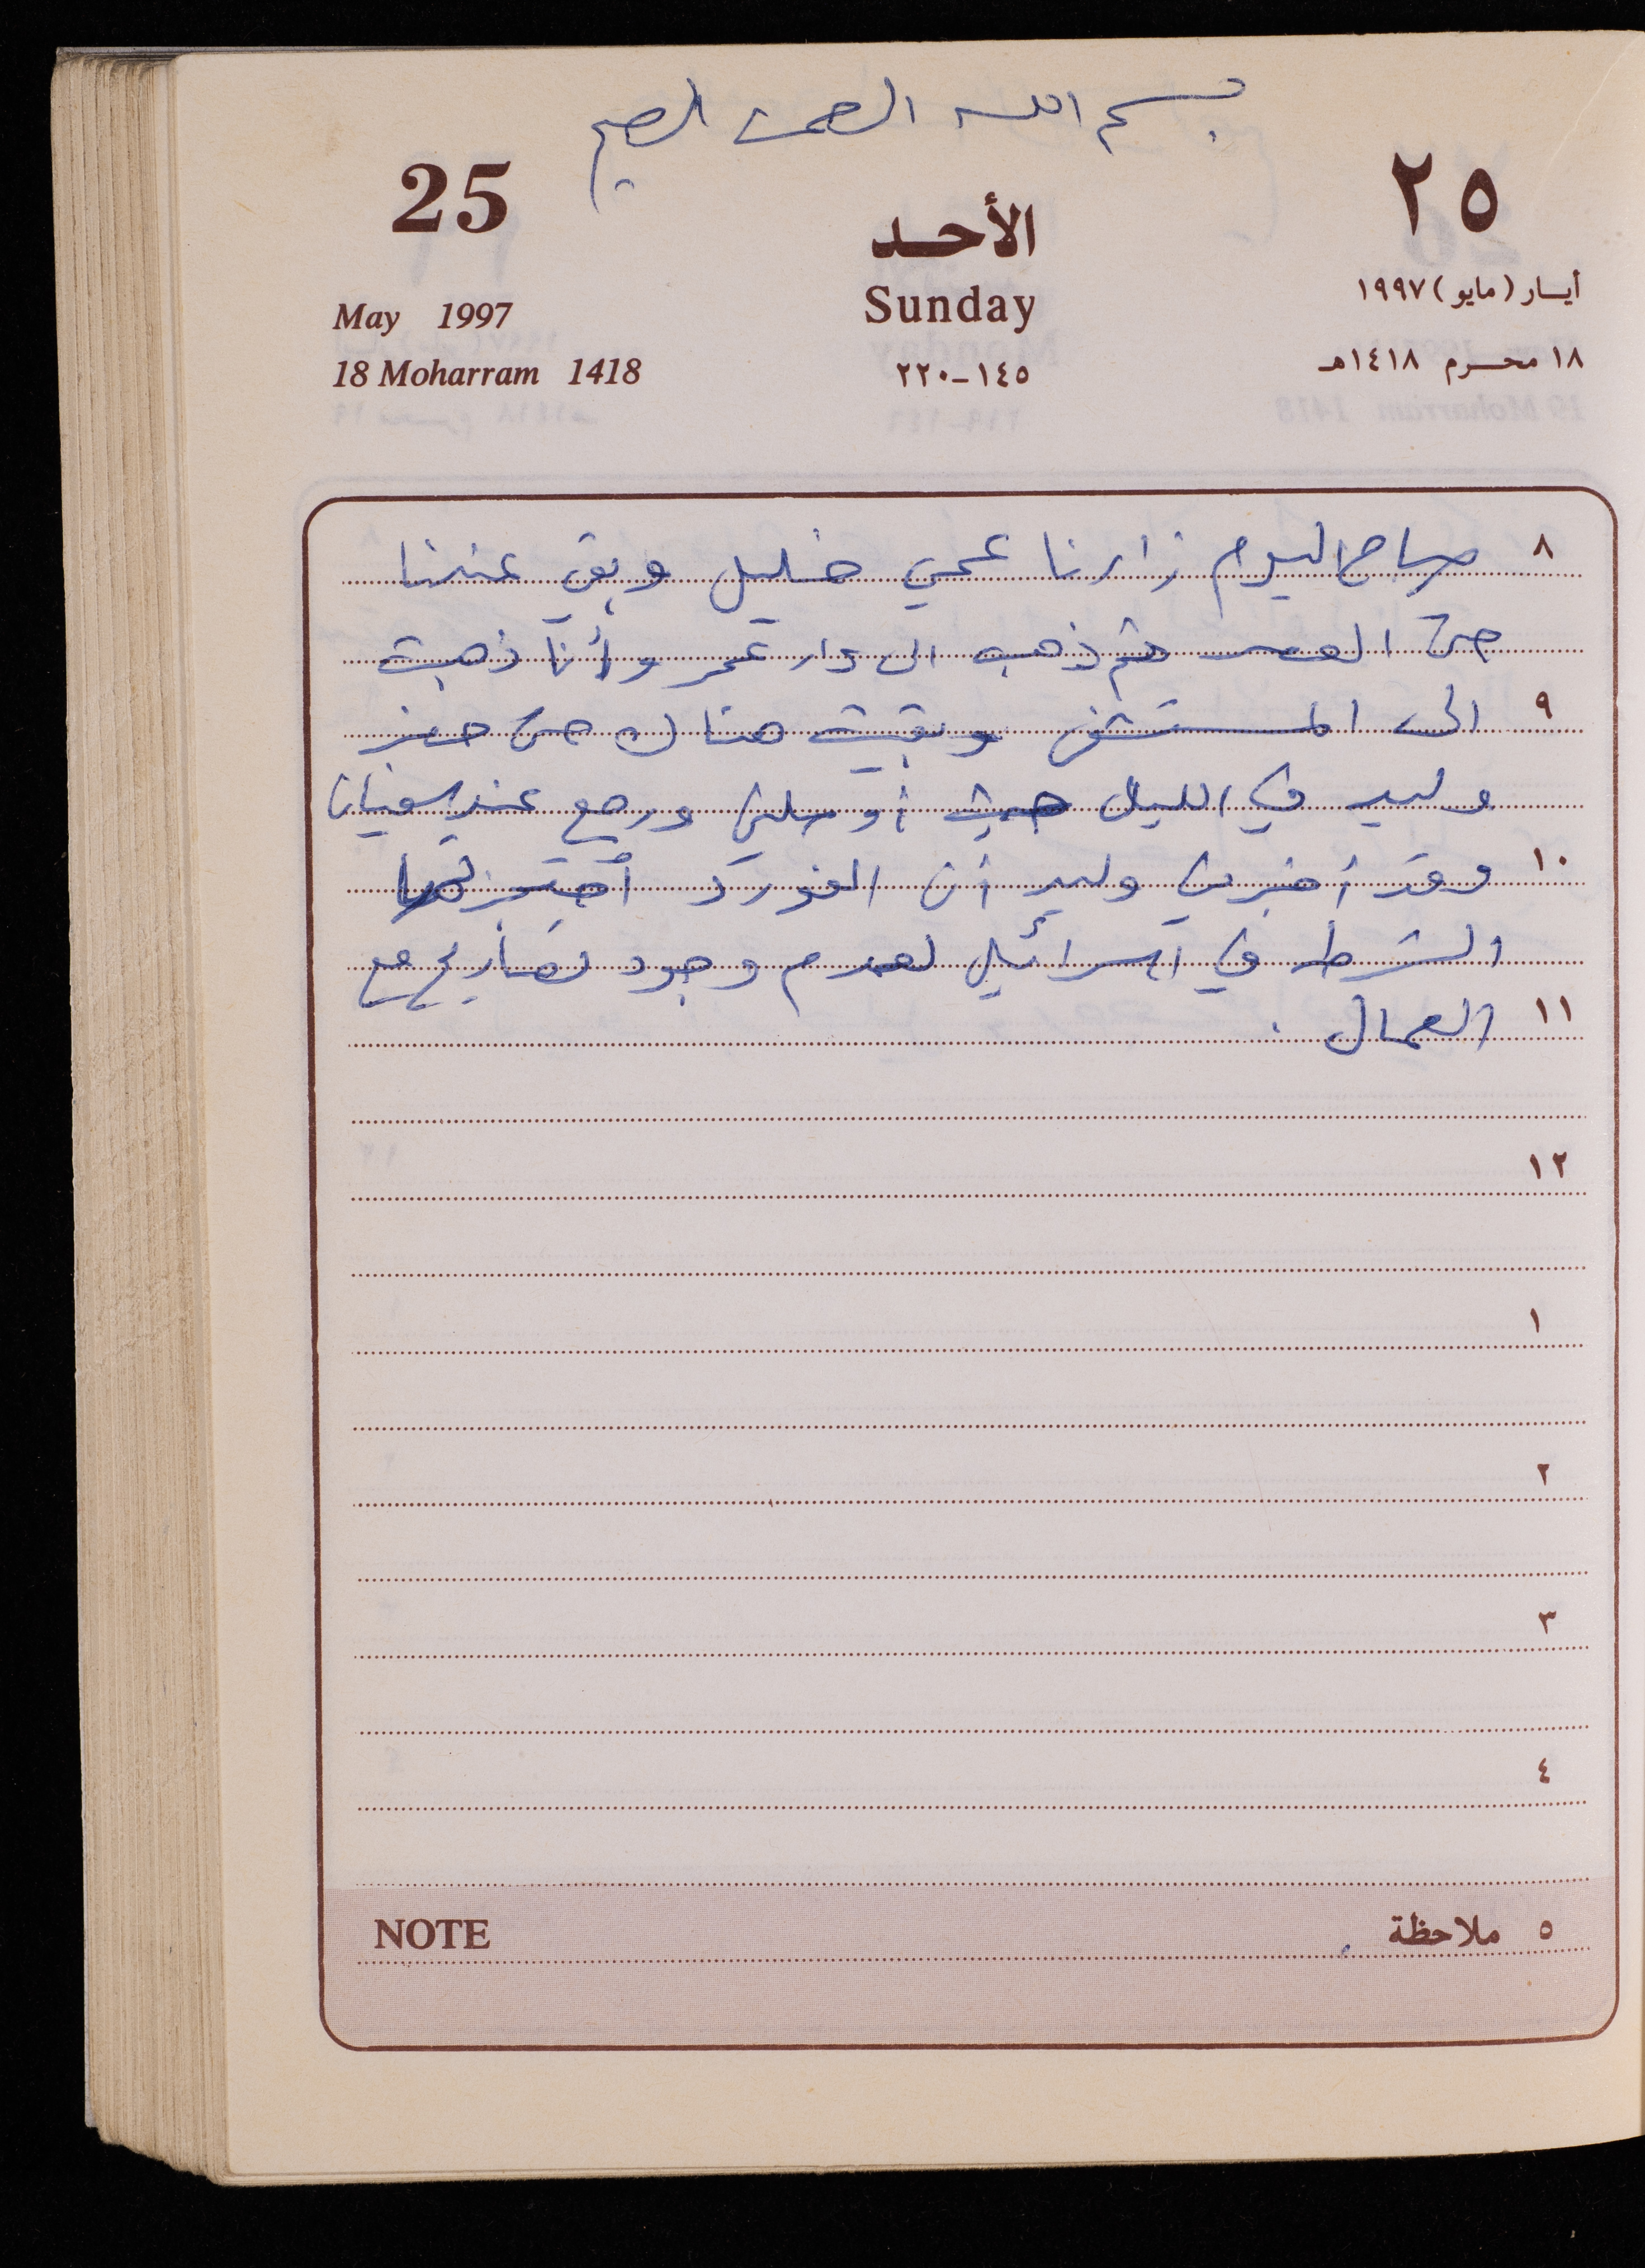 بسم الله الرحمن الرحيم
25
الأحد
٢٥
May 1997
Sunday
أيار (مايو) ١٩٩٧
18 Moharram 1418
١٤٥-٢٢٠
١٨ محرم ١٤١٨هـ
٨ صباح اليوم زارنا عمي خليل وبقي عندنا
حتى العصر ثم ذهب الى دار عمر وأنا ذهبت
٩ الى المستشفى وبقيت هناك حتى حضر
وليد في الليل حيث أوصلني ورجع عند سفيان
١٠ وقد أخبرني وليد أن الفورد احتجزتها
الشرطة في اسرائيل لعدم وجود تصاريح مع
١١ العمال .
١٢
١
٢
٣
٤
NOTE
٥ ملاحظة